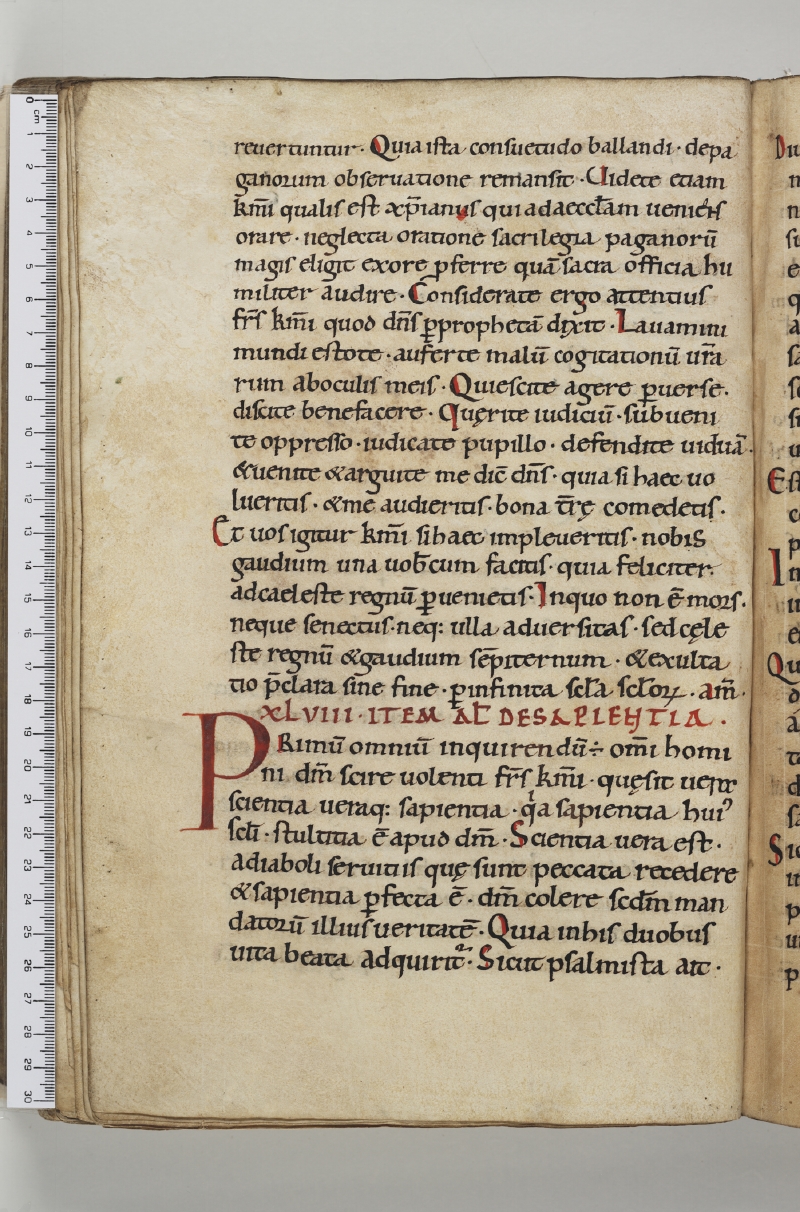 reuertuntur. Quia ista consuetudo ballandi. depa
ganorum obseruatione remansit. Uidete etiam
km̄i qualis est xp̄ianus qui ad aeccl̄am ueniens
orare. neglecta oratione sacrilegia paganorū
magis eligit ex ore ꝓferre quā sacra officia hu
militer audire. Considerate ergo attentius
fr̄s km̄i quod dn̄s ꝑ prophetā dixit. Lauamini
mundi estote. auferte malū cogitationū ur̄a
rum ab oculis meis. Quiescite agere ꝑuerse.
discite benefacere. Quęrite iudiciū. subueni
te oppresso. iudicate pupillo. defendite uiduā.
& uenite & arguite me dic̄ dn̄s. quia si haec uo
lueritis. & me audieritis. bona t̄rę comedetis.
Et uos igitur km̄i si haec impleueritis. nobis
gaudium una uob̄cum facitis. quia feliciter.
ad caeleste regnū ꝑuenietis. In quo non ē mors.
neque senectus. neq: ulla aduersitas. sed cęle
ste regnū & gaudium sēpiternum. & exulta
tio p̄clara sine fine. ꝑ infinita scl̄a scl̄oꝝ. am̄.
XLVIII. ITEM AL̄ DE SAPIENTIA.
PRimū omniū inquirendū ÷ om̄i homi
ni dm̄ scire uolenti fr̄s km̄i. quę sit uera
scientia ueraq: sapientia. qa sapientia hui᾿
scl̄i. stultitia ē apud dm̄. Scientia uera est.
a diaboli seruitiis quę sunt peccata recedere
& sapientia ꝑfecta ē. dm̄ colere scd̄m man
datorū illius ueritatē. Quia in his duobus
uita beata adquirit᷑. Sicut psalmista ait.
Du
n
n
st
e
q
a
sa
sc
si
u
Est
c
p
In
tt
e
Qu
d
a
t
d
sa
Sic
it
p
u
p
0 cm 1 2 3 4 5 6 7 8 9 10 11 12 13 14 15 16 17 18 19 20 21 22 23 24 25 26 27 28 29 30